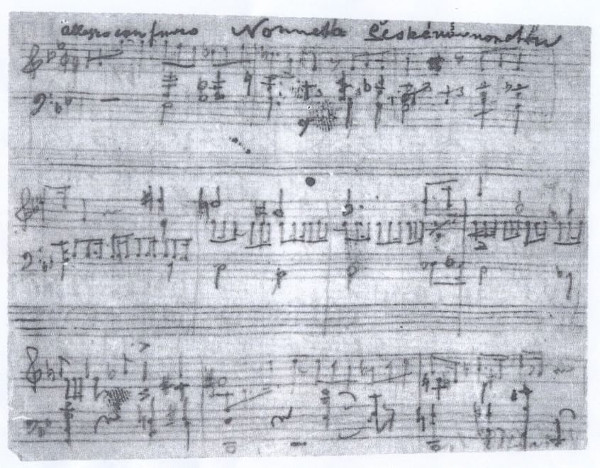 allegro con fuoco Nonnetto Českému nonetu